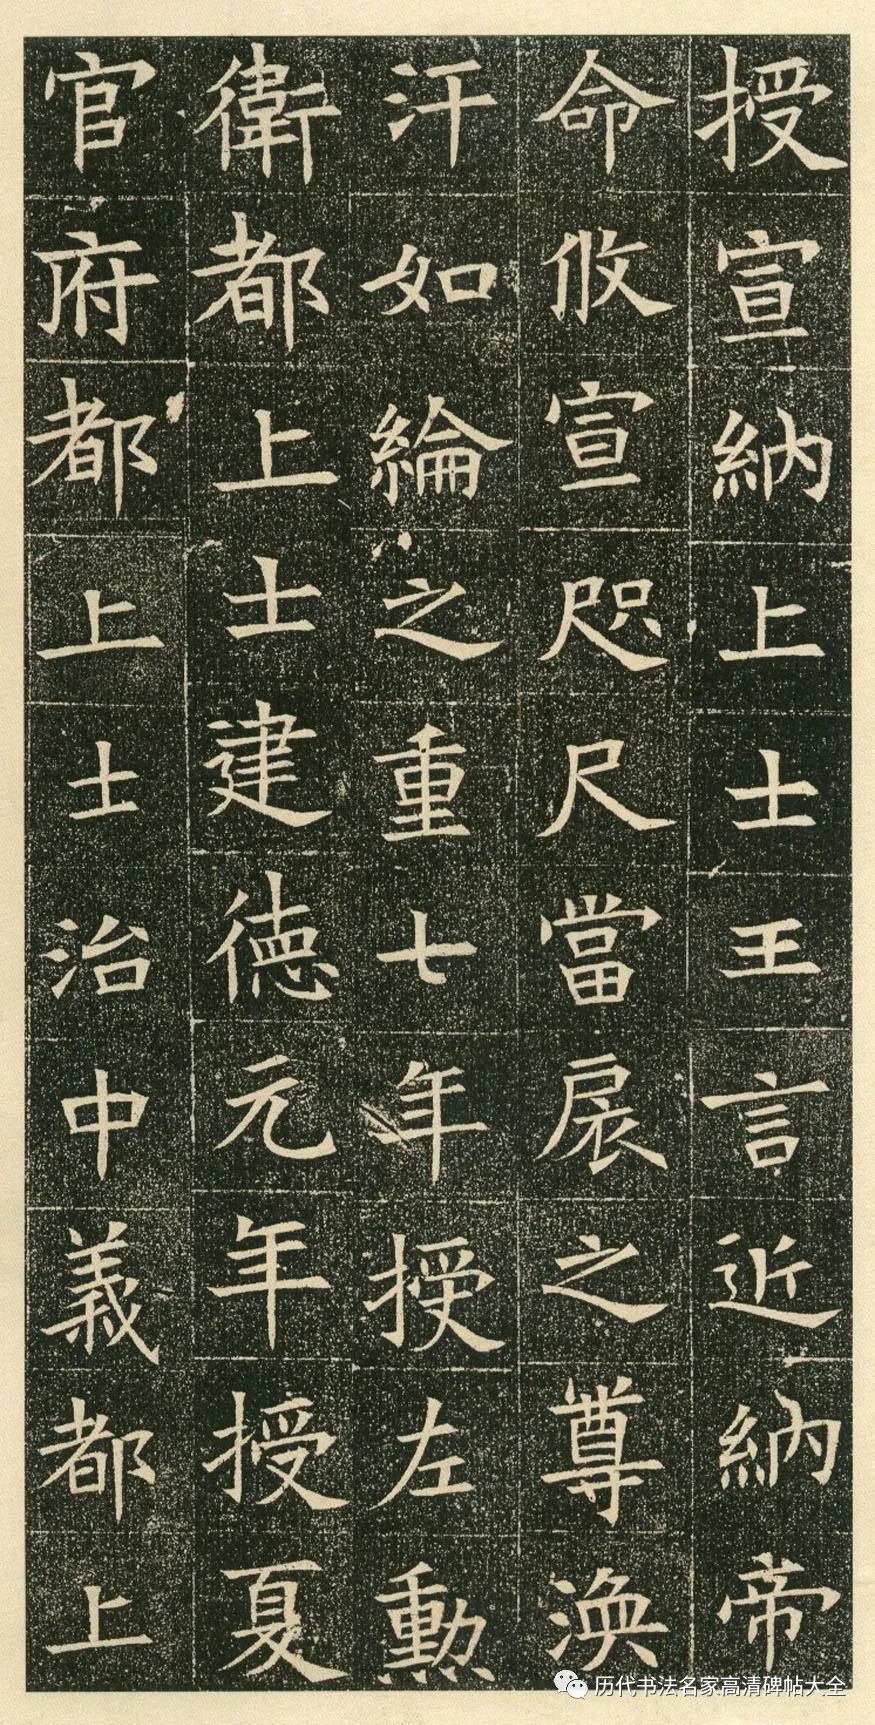 授宣納上士王言近納帝
命攸宣咫尺當扆之尊渙
汗如綸之重七年授左勳
衛都上士建德元年授夏
官府都上士治中義都上
历代书法名家高清碑帖大全